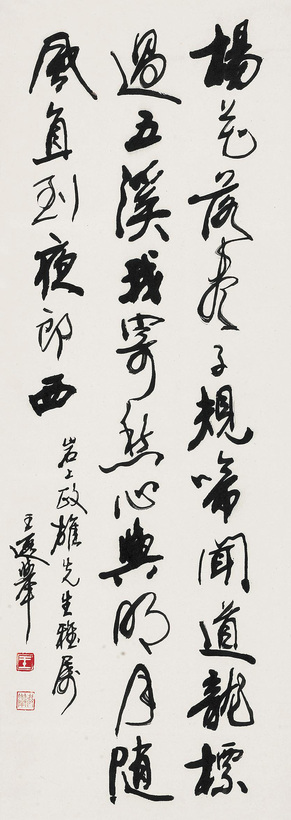 楊花落盡子規啼聞道龍標
過五溪我寄愁心與明月隨
風直到夜郎西
岩上政雄先生雅屬
王遐舉